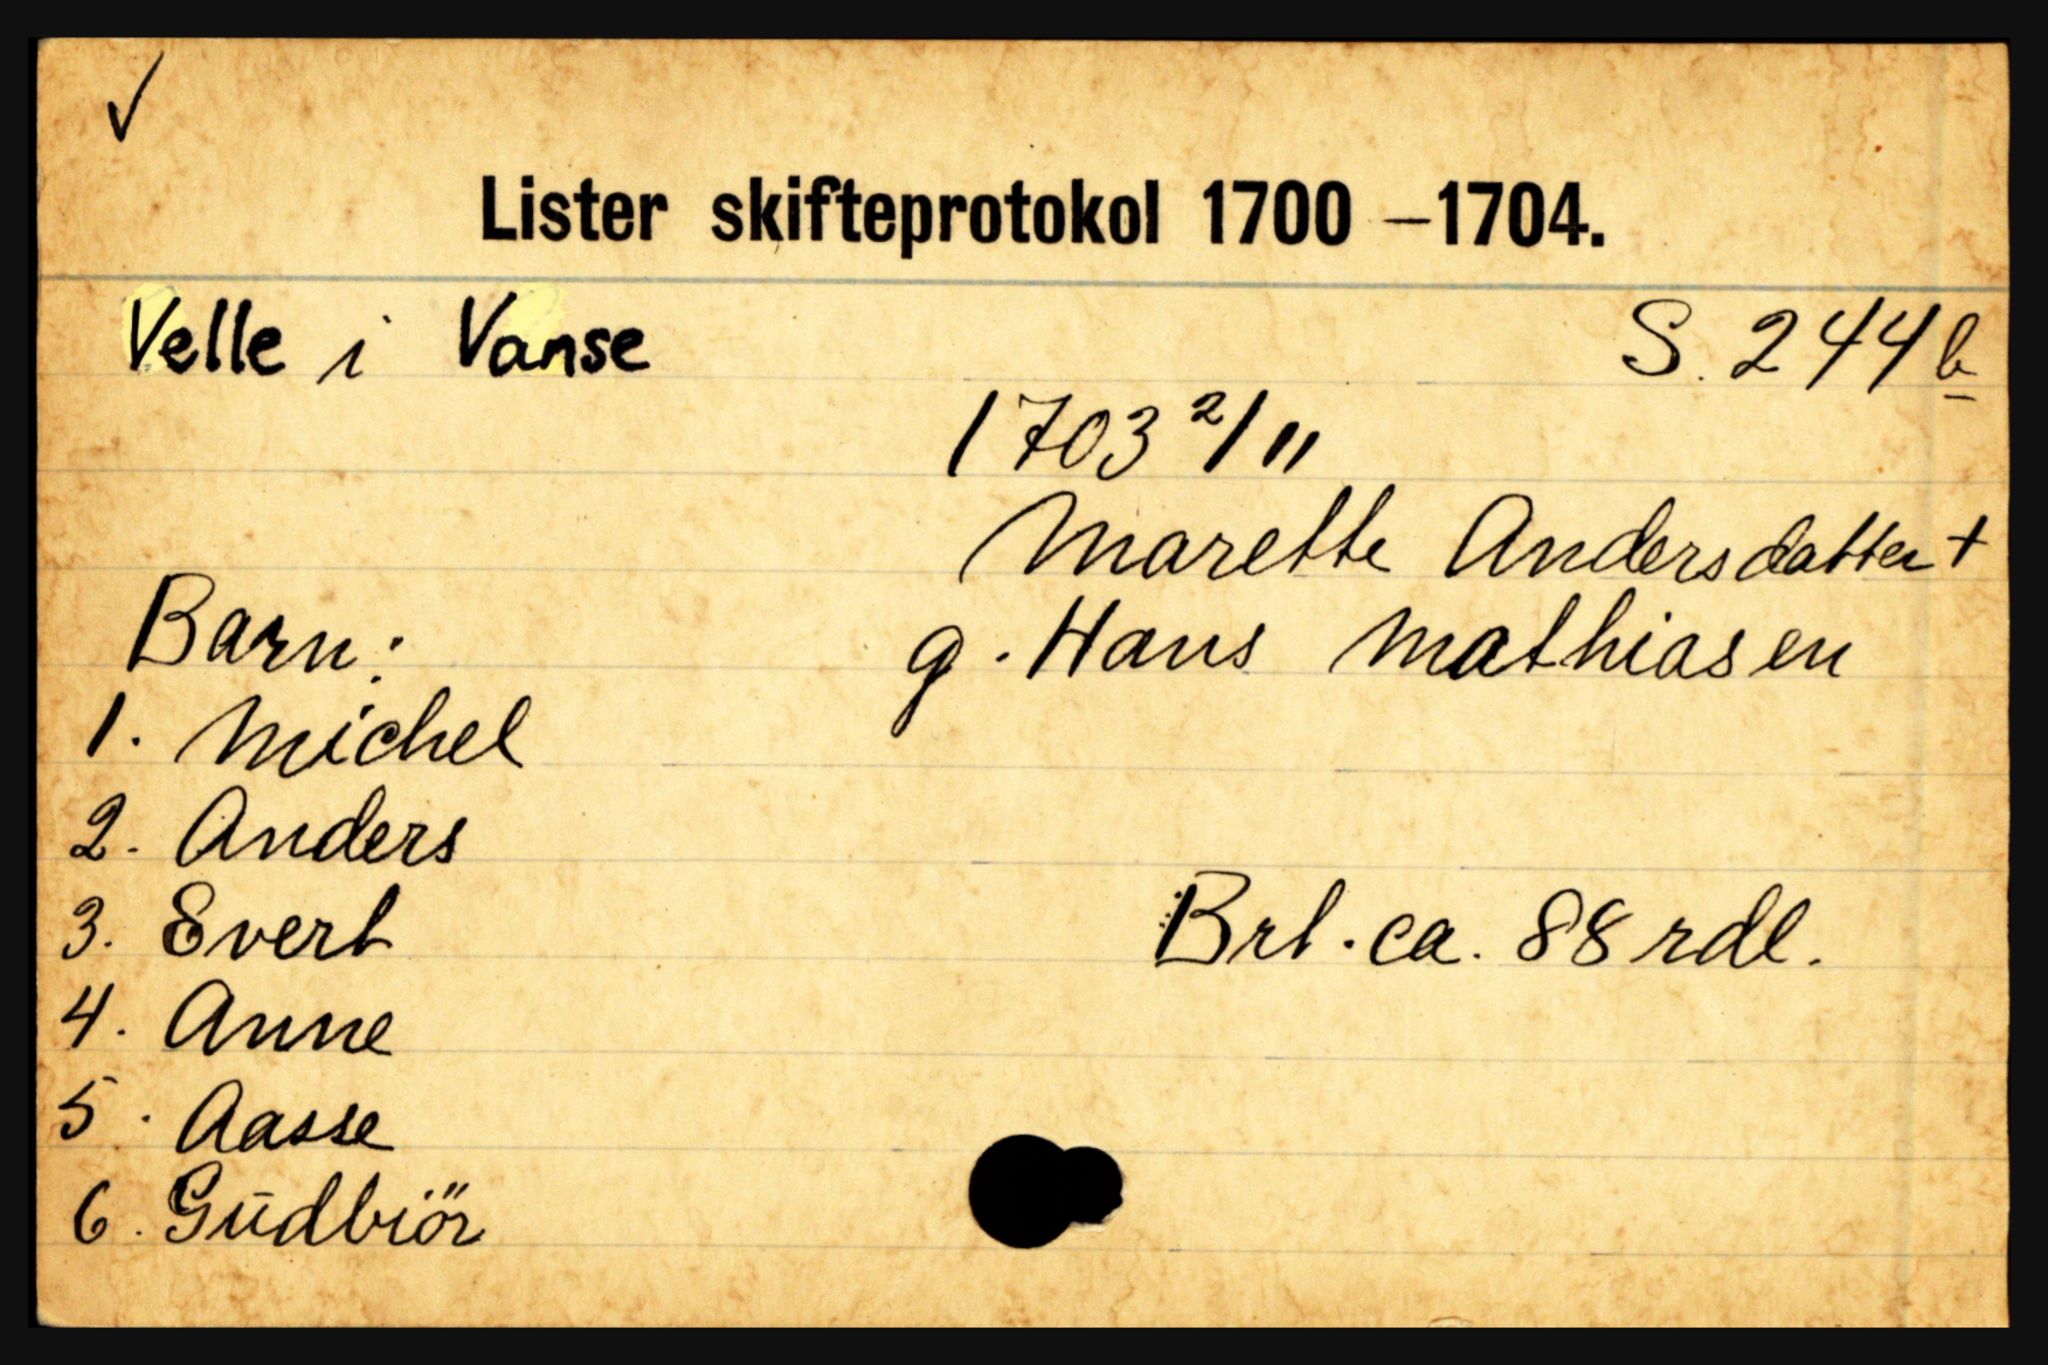 ✓
Lister skifteprotokol 1700 – 1704.
Velle i Vanse S. 244 b
1703 2/11
Marette Andersdatter +
Barn: g. Hans Mathiasen
1. Michel
2. Anders
3. Evert Brt. ca. 88 rdl.
4. Anne
5. Aasse
6. Gūdbiör